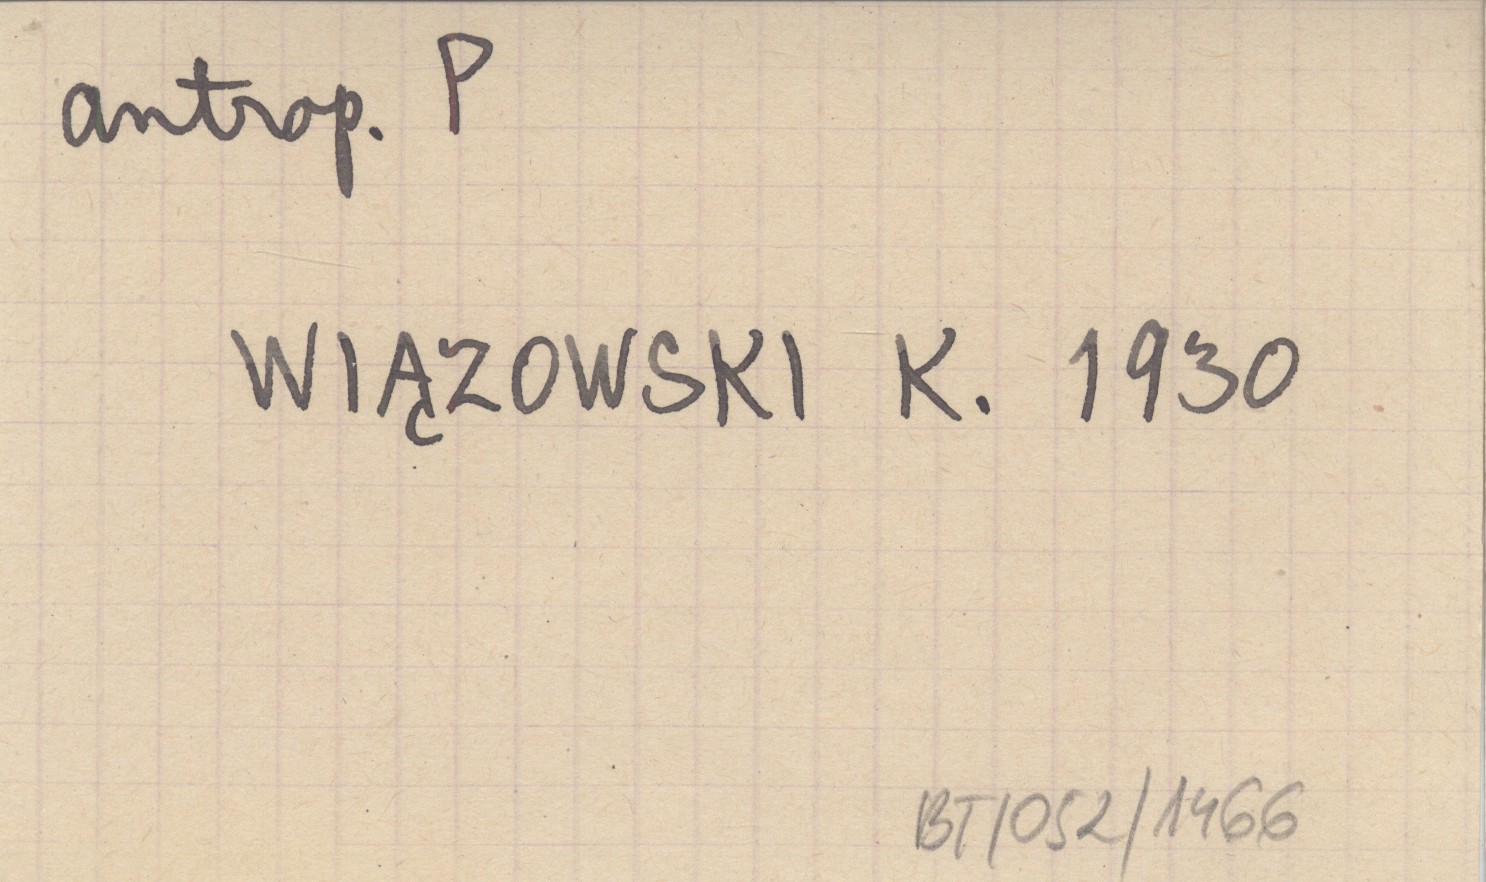 antrop. P
WIĄZOWSKI K. 1930
BT/052/1466